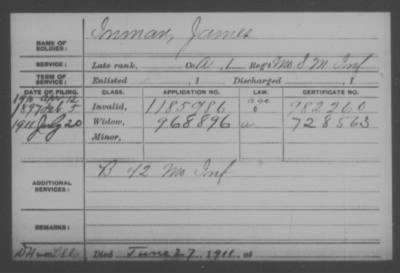 NAME OF SOLDIER: Inman, James
SERVICE: Late rank, Co. A, 1 Reg't Mo. S M Inf
TERM OF SERVICE: Enlisted , 1 Discharged , 1
DATE OF FILING. CLASS. APPLICATION NO. LAW. CERTIFICATE NO.
1897 Feb 5 Invalid, 1185986 age 982260
1911 July 20 Widow, 968896 a 728563
Minor,
ADDITIONAL SERVICES: B 42 Mo Inf
REMARKS:
Died June 27, 1911, at